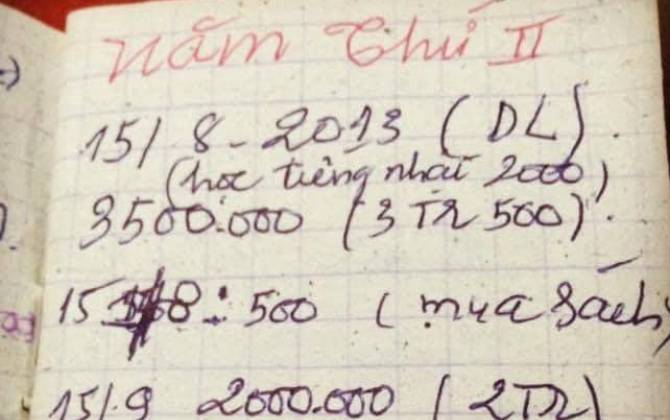 Năm thứ II
15/ 8 - 2013 ( DL ) .
(học tiếng nhật 2000)
3500.000 (3 TR 500) .
15 8 : 500 ( mua sách)
15/9 2000.000 ( 2TR)